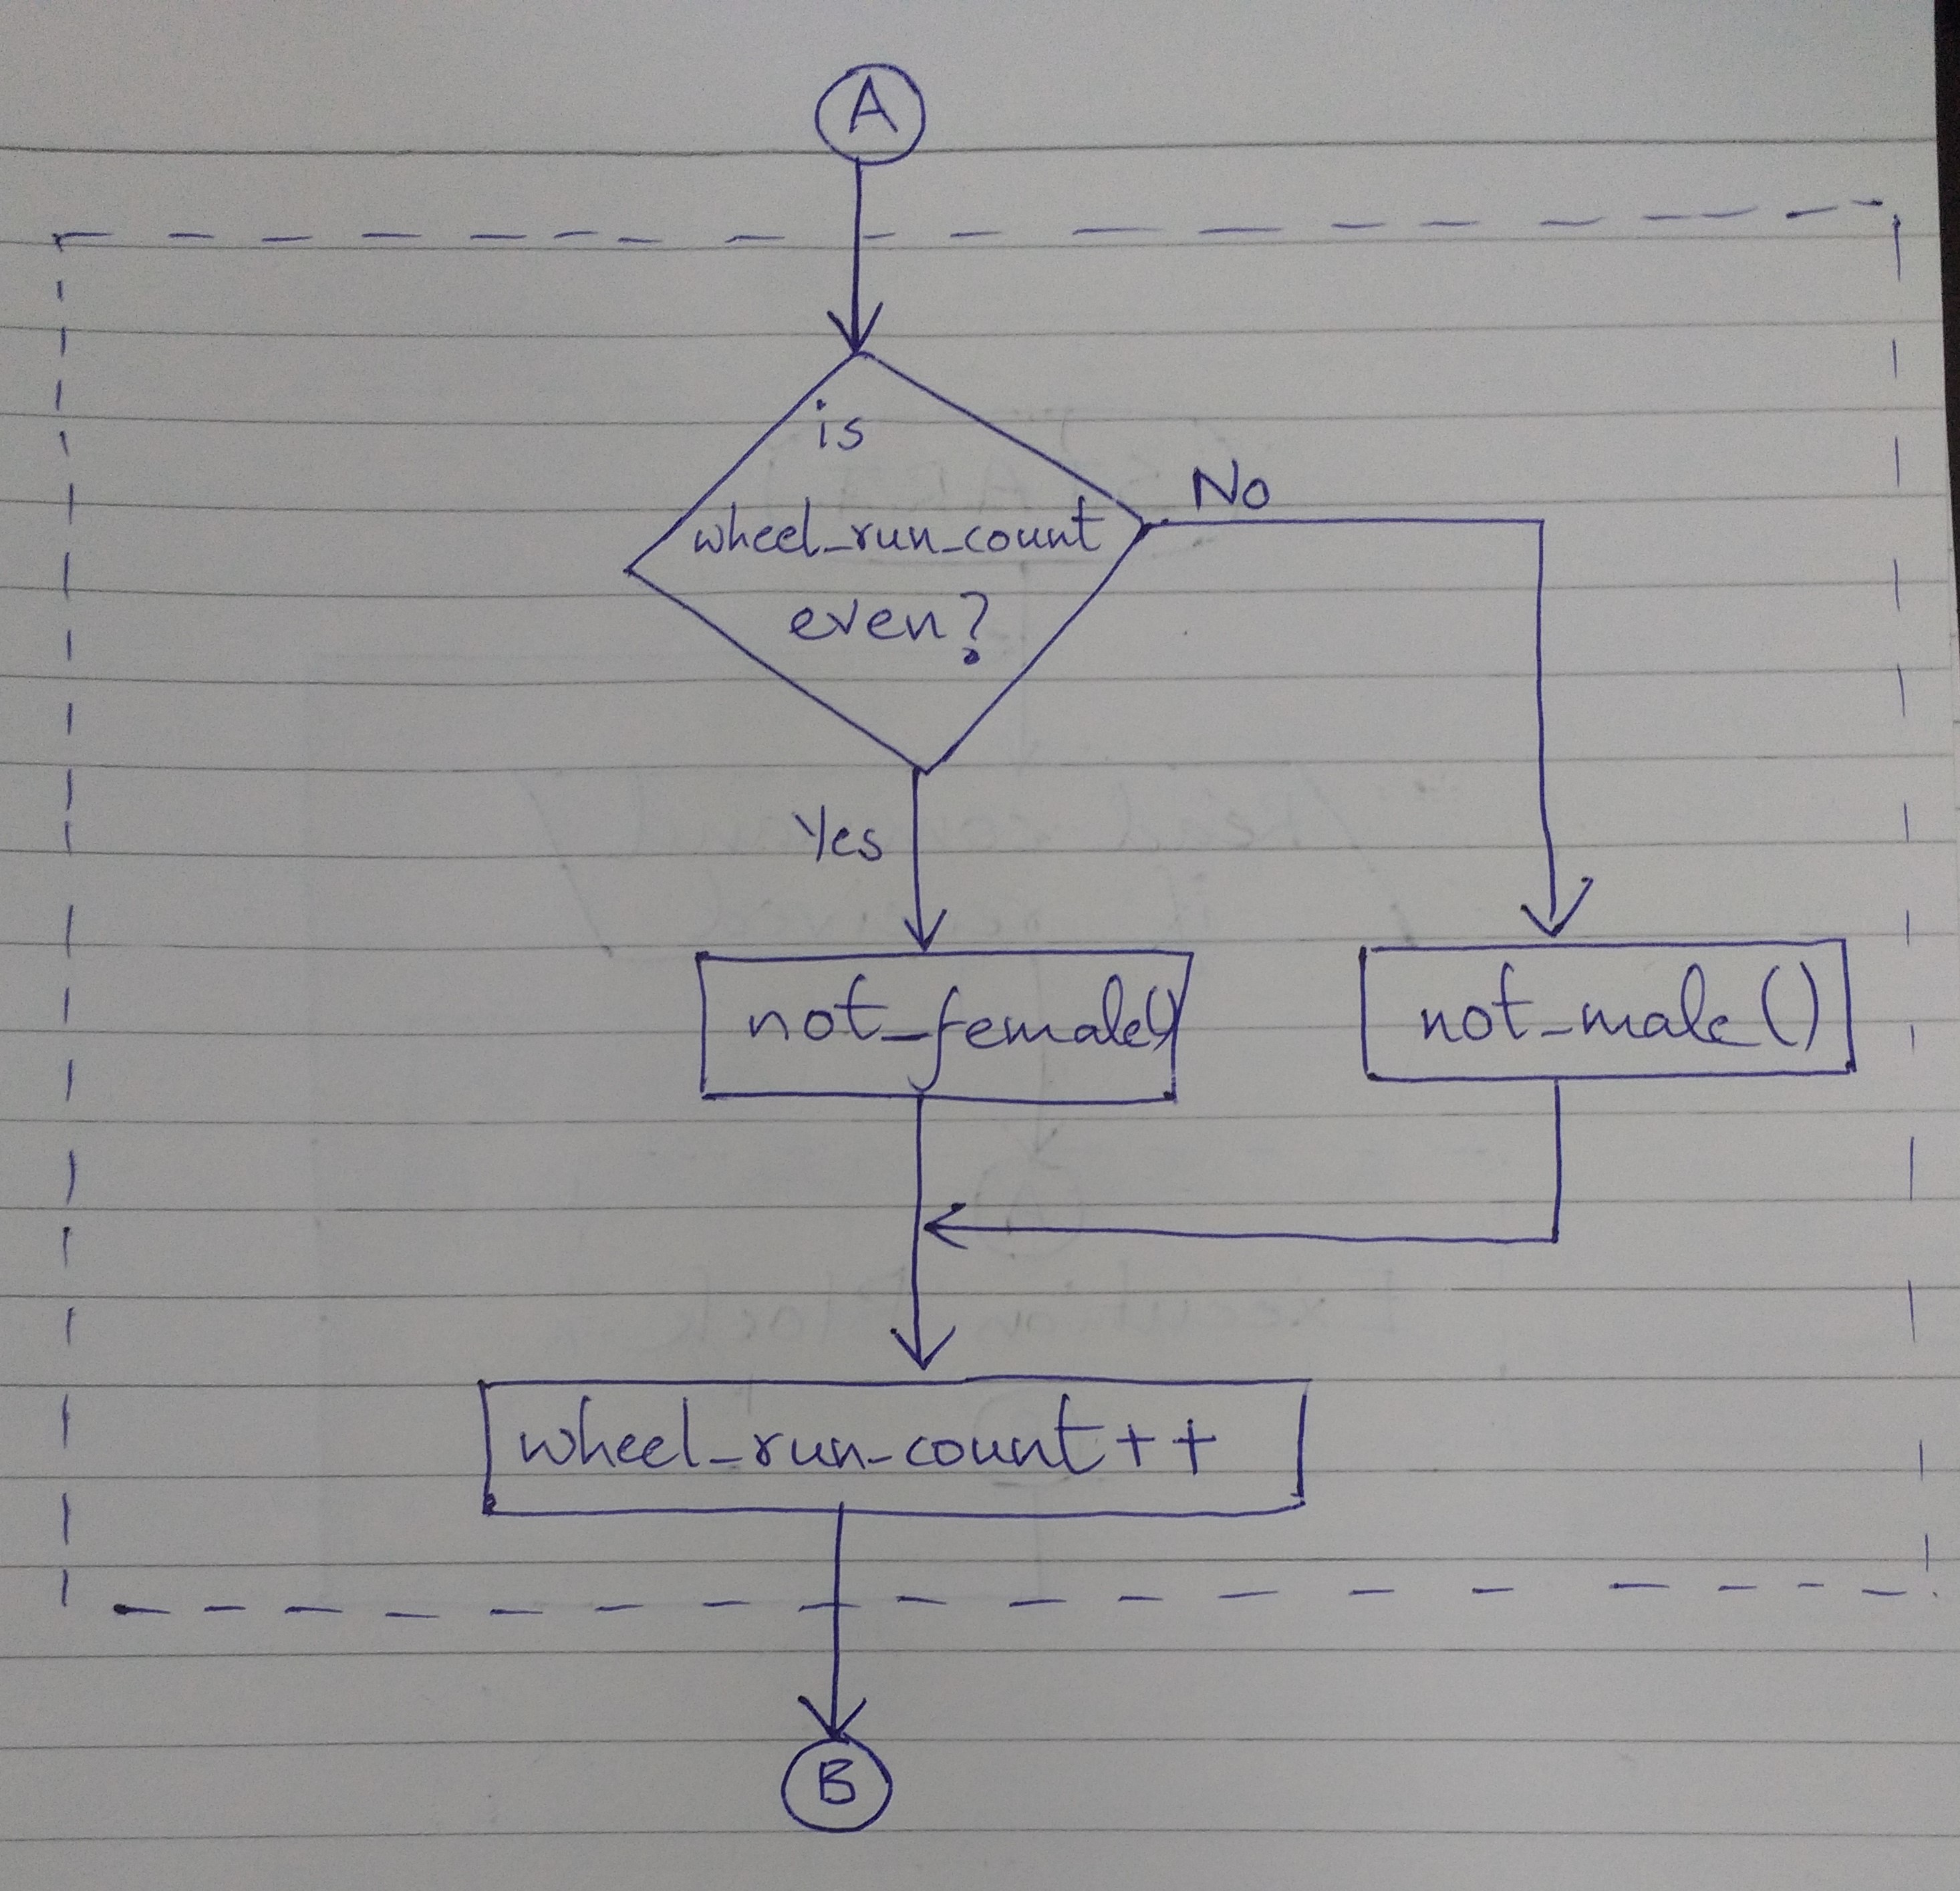 A
is
wheel_run_count
even?
No
Yes
not_female()
not_male()
wheel_run_count++
B